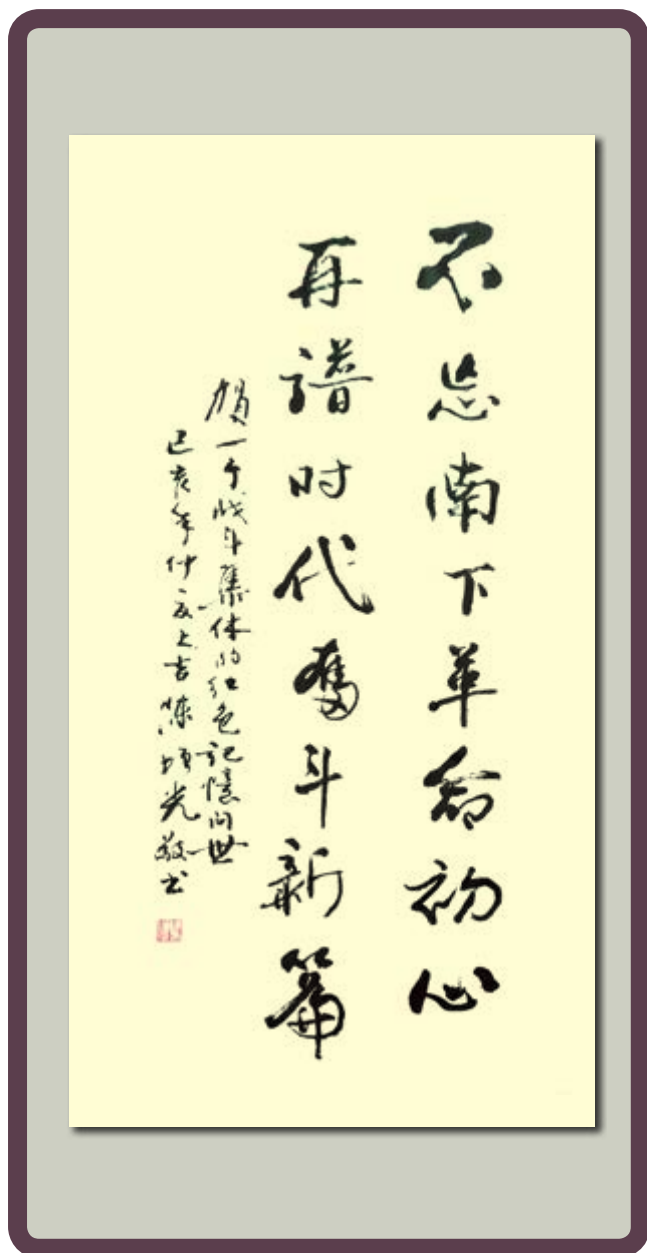 不忘南下革命初心
再谱时代奮斗新篇
贺一个战斗集体的红色記憶问世
己亥年仲夏上吉陈 光敬书